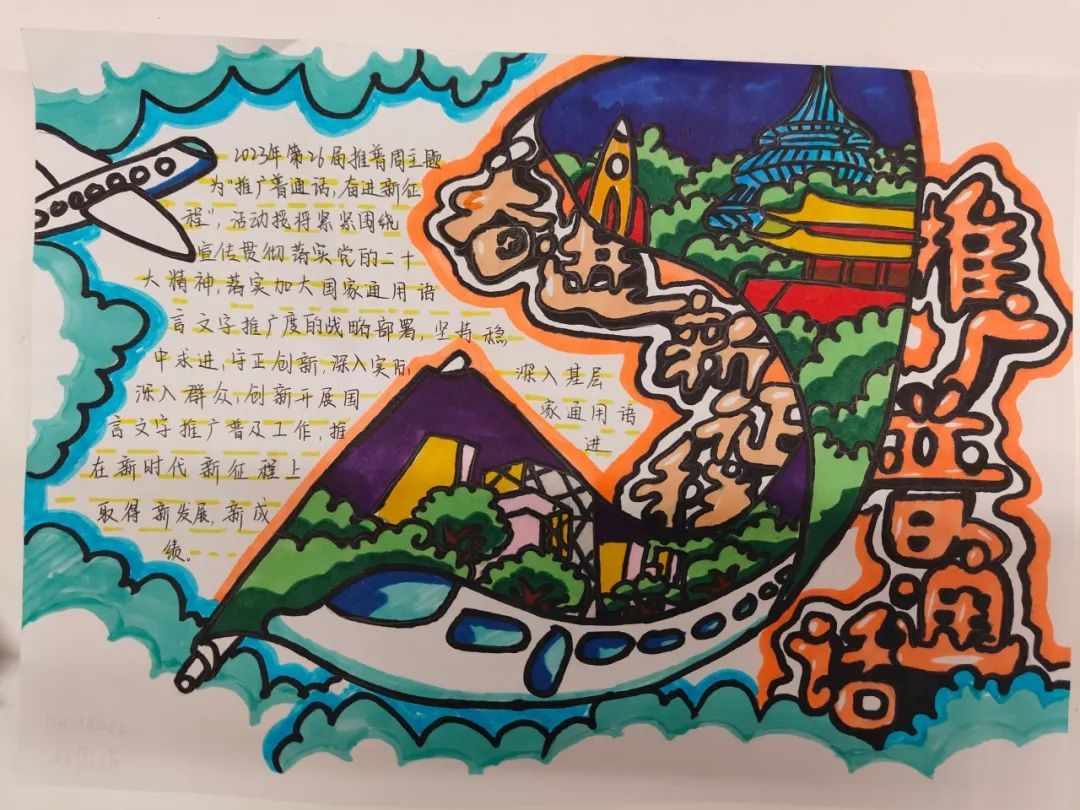 2023年第26届推普周主题
为"推广普通话,奋进新征
程",活动现将紧紧围绕
宣传贯彻落实党的二十
大精神,落实加大国家通用语
言文字推广度的战略部署,坚持稳
中求进,守正创新,深入实际,深入基层
深入群众,创新开展国家通用语
言文字推广普及工作,推进
在新时代新征程上
取得新发展,新成
绩。
奋进新征程
推广普通话